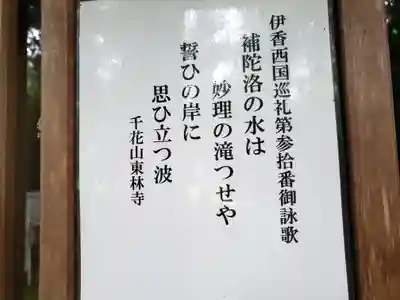 伊香西国巡礼第参拾番御詠歌
補陀洛の水は
妙理の滝つせや
誓ひの岸に
思ひ立つ波
千花山東林寺